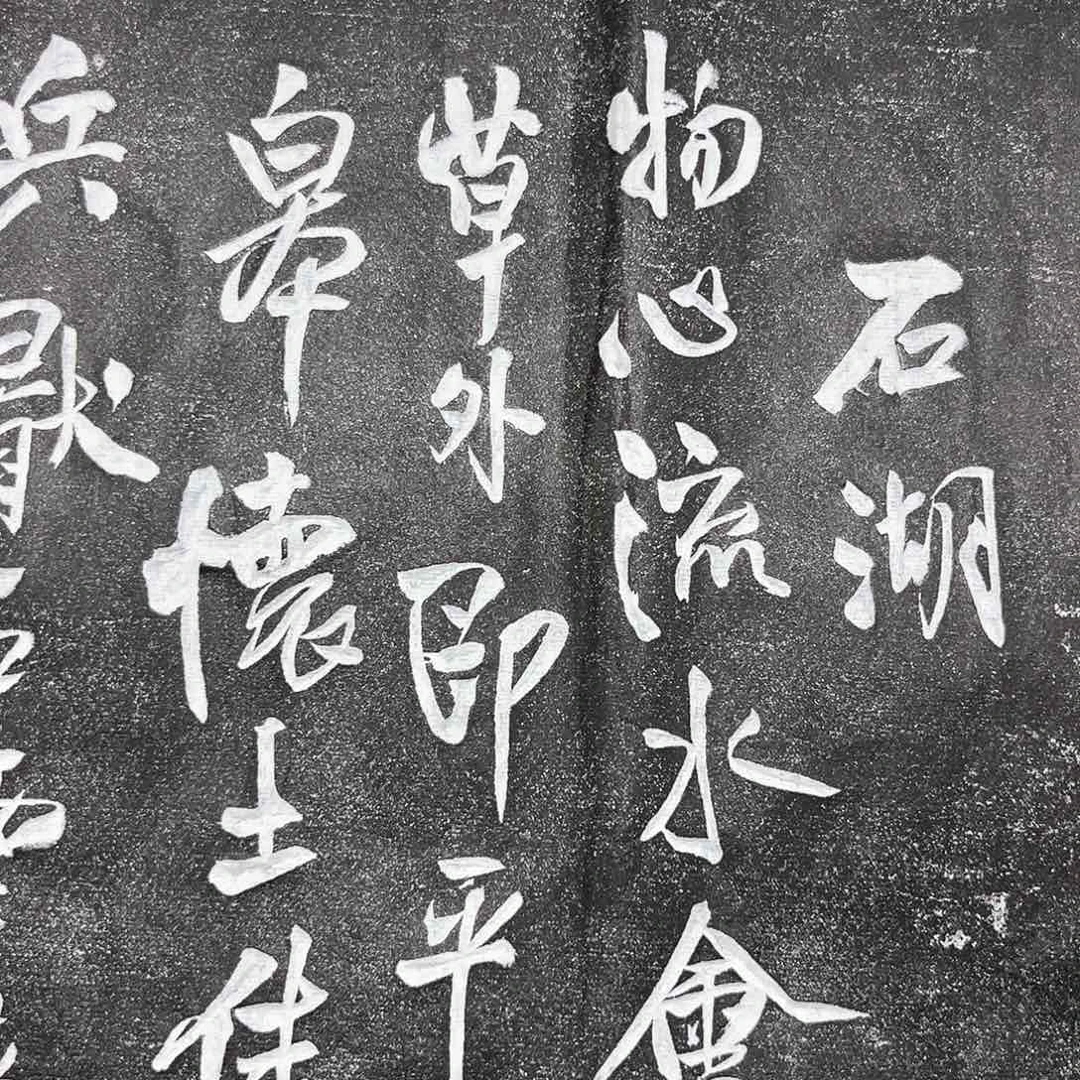 石湖
物心流水會
草外即平
皋懷土佳
兵